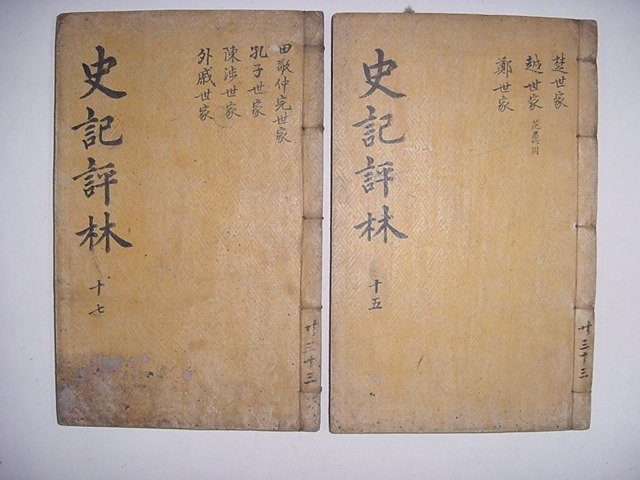 楚世家
越世家 范蠡附
鄭世家
史記評林
十五
共三十三
田敬仲完世家
孔子世家
陳涉世家
外戚世家
史記評林
十七
共三十三